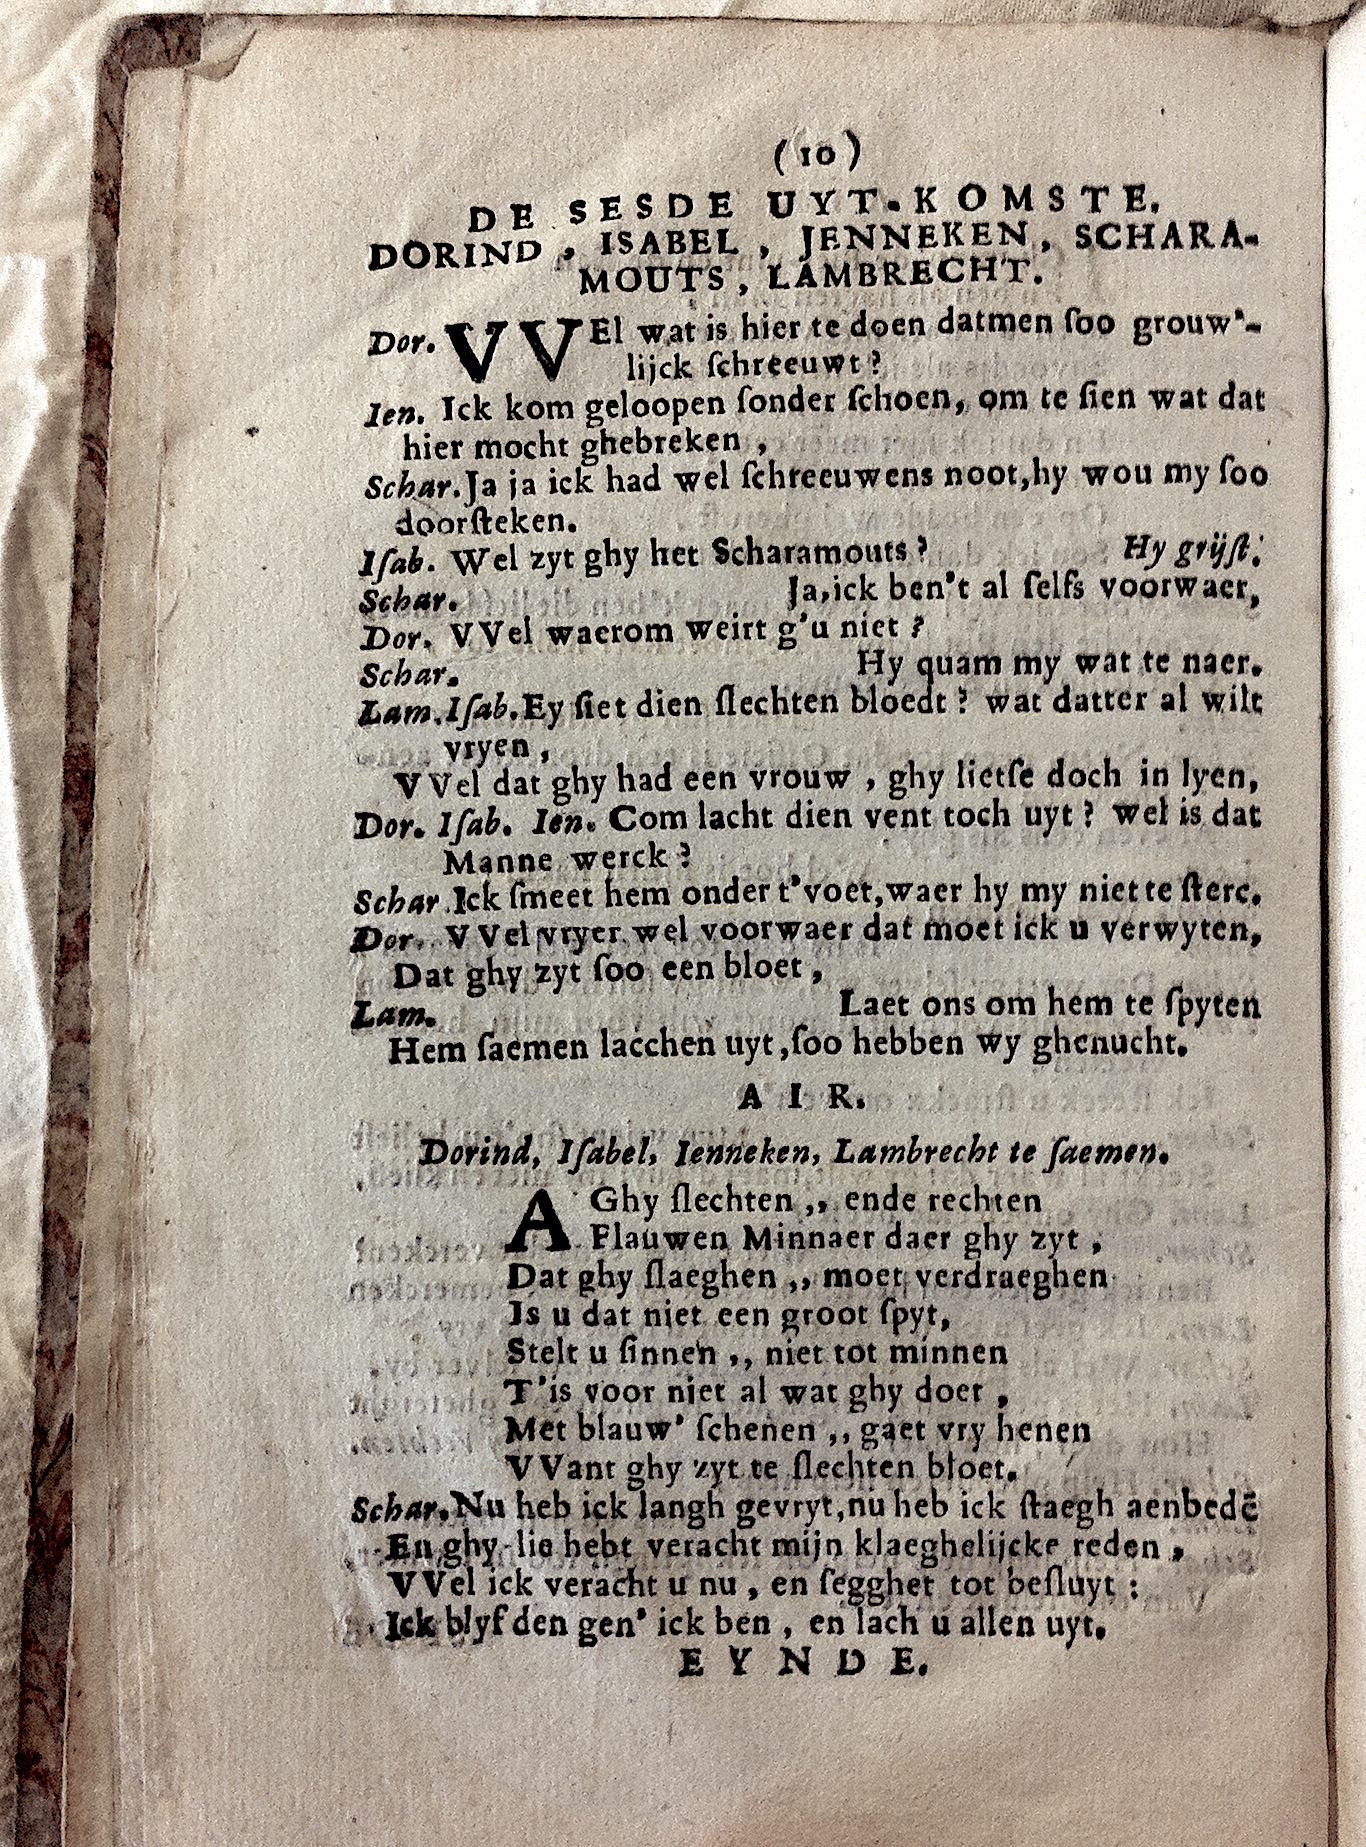 (10)
DE SESDE UYT-KOMSTE.
DORIND, ISABEL, JENNEKEN, SCHARA-
MOUTS, LAMBRECHT.
Dor. VVEl wat is hier te doen datmen ſoo grouw'-
lijck ſchreeuwt?
Ien. Ick kom geloopen ſonder ſchoen, om te ſien wat dat
hier mocht ghebreken,
Schar. Ja ja ick had wel ſchreeuwens noot, hy wou my ſoo
doorſteken.
Iſab. Wel zyt ghy het Scharamouts? Hy grijſt.
Schar. Ja, ick ben't al ſelfs voorwaer,
Dor. VVel waerom weirt g'u niet?
Schar. Hy quam my wat te naer.
Lam. Iſab. Ey ſiet dien ſlechten bloedt? wat datter al wilt
vryen,
VVel dat ghy had een vrouw, ghy lietſe doch in lyen,
Dor. Iſab. Ien. Com lacht dien vent toch uyt? wel is dat
Manne werck?
Schar. Ick ſmeet hem onder t'voet, waer hy my niet te sterc.
Dor. VVel vryer wel voorwaer dat moet ick u verwyten,
Dat ghy zyt ſoo een bloet,
Lam. Laet ons om hem te ſpyten
Hem ſaemen lacchen uyt, ſoo hebben wy ghenucht.
AIR.
Dorind, Iſabel, Ienneken, Lambrecht te ſaemen.
A Ghy ſlechten ,, ende rechten
Flauwen Minnaer daer ghy zyt,
Dat ghy ſlaeghen ,, moet verdraeghen
Is u dat niet een groot ſpyt,
Stelt u ſinnen ,, niet tot minnen
T'is voor niet al wat ghy doet,
Met blauw' ſchenen ,, gaet vry henen
VVant ghy zyt te ſlechten bloet.
Schar. Nu heb ick langh gevryt, nu heb ick ſtaegh aenbedē
En ghy lie hebt veracht mijn klaeghelijcke reden,
VVel ick veracht u nu, en ſegghet tot beſluyt:
Ick blyf den gen' ick ben, en lach u allen uyt.
EYNDE.